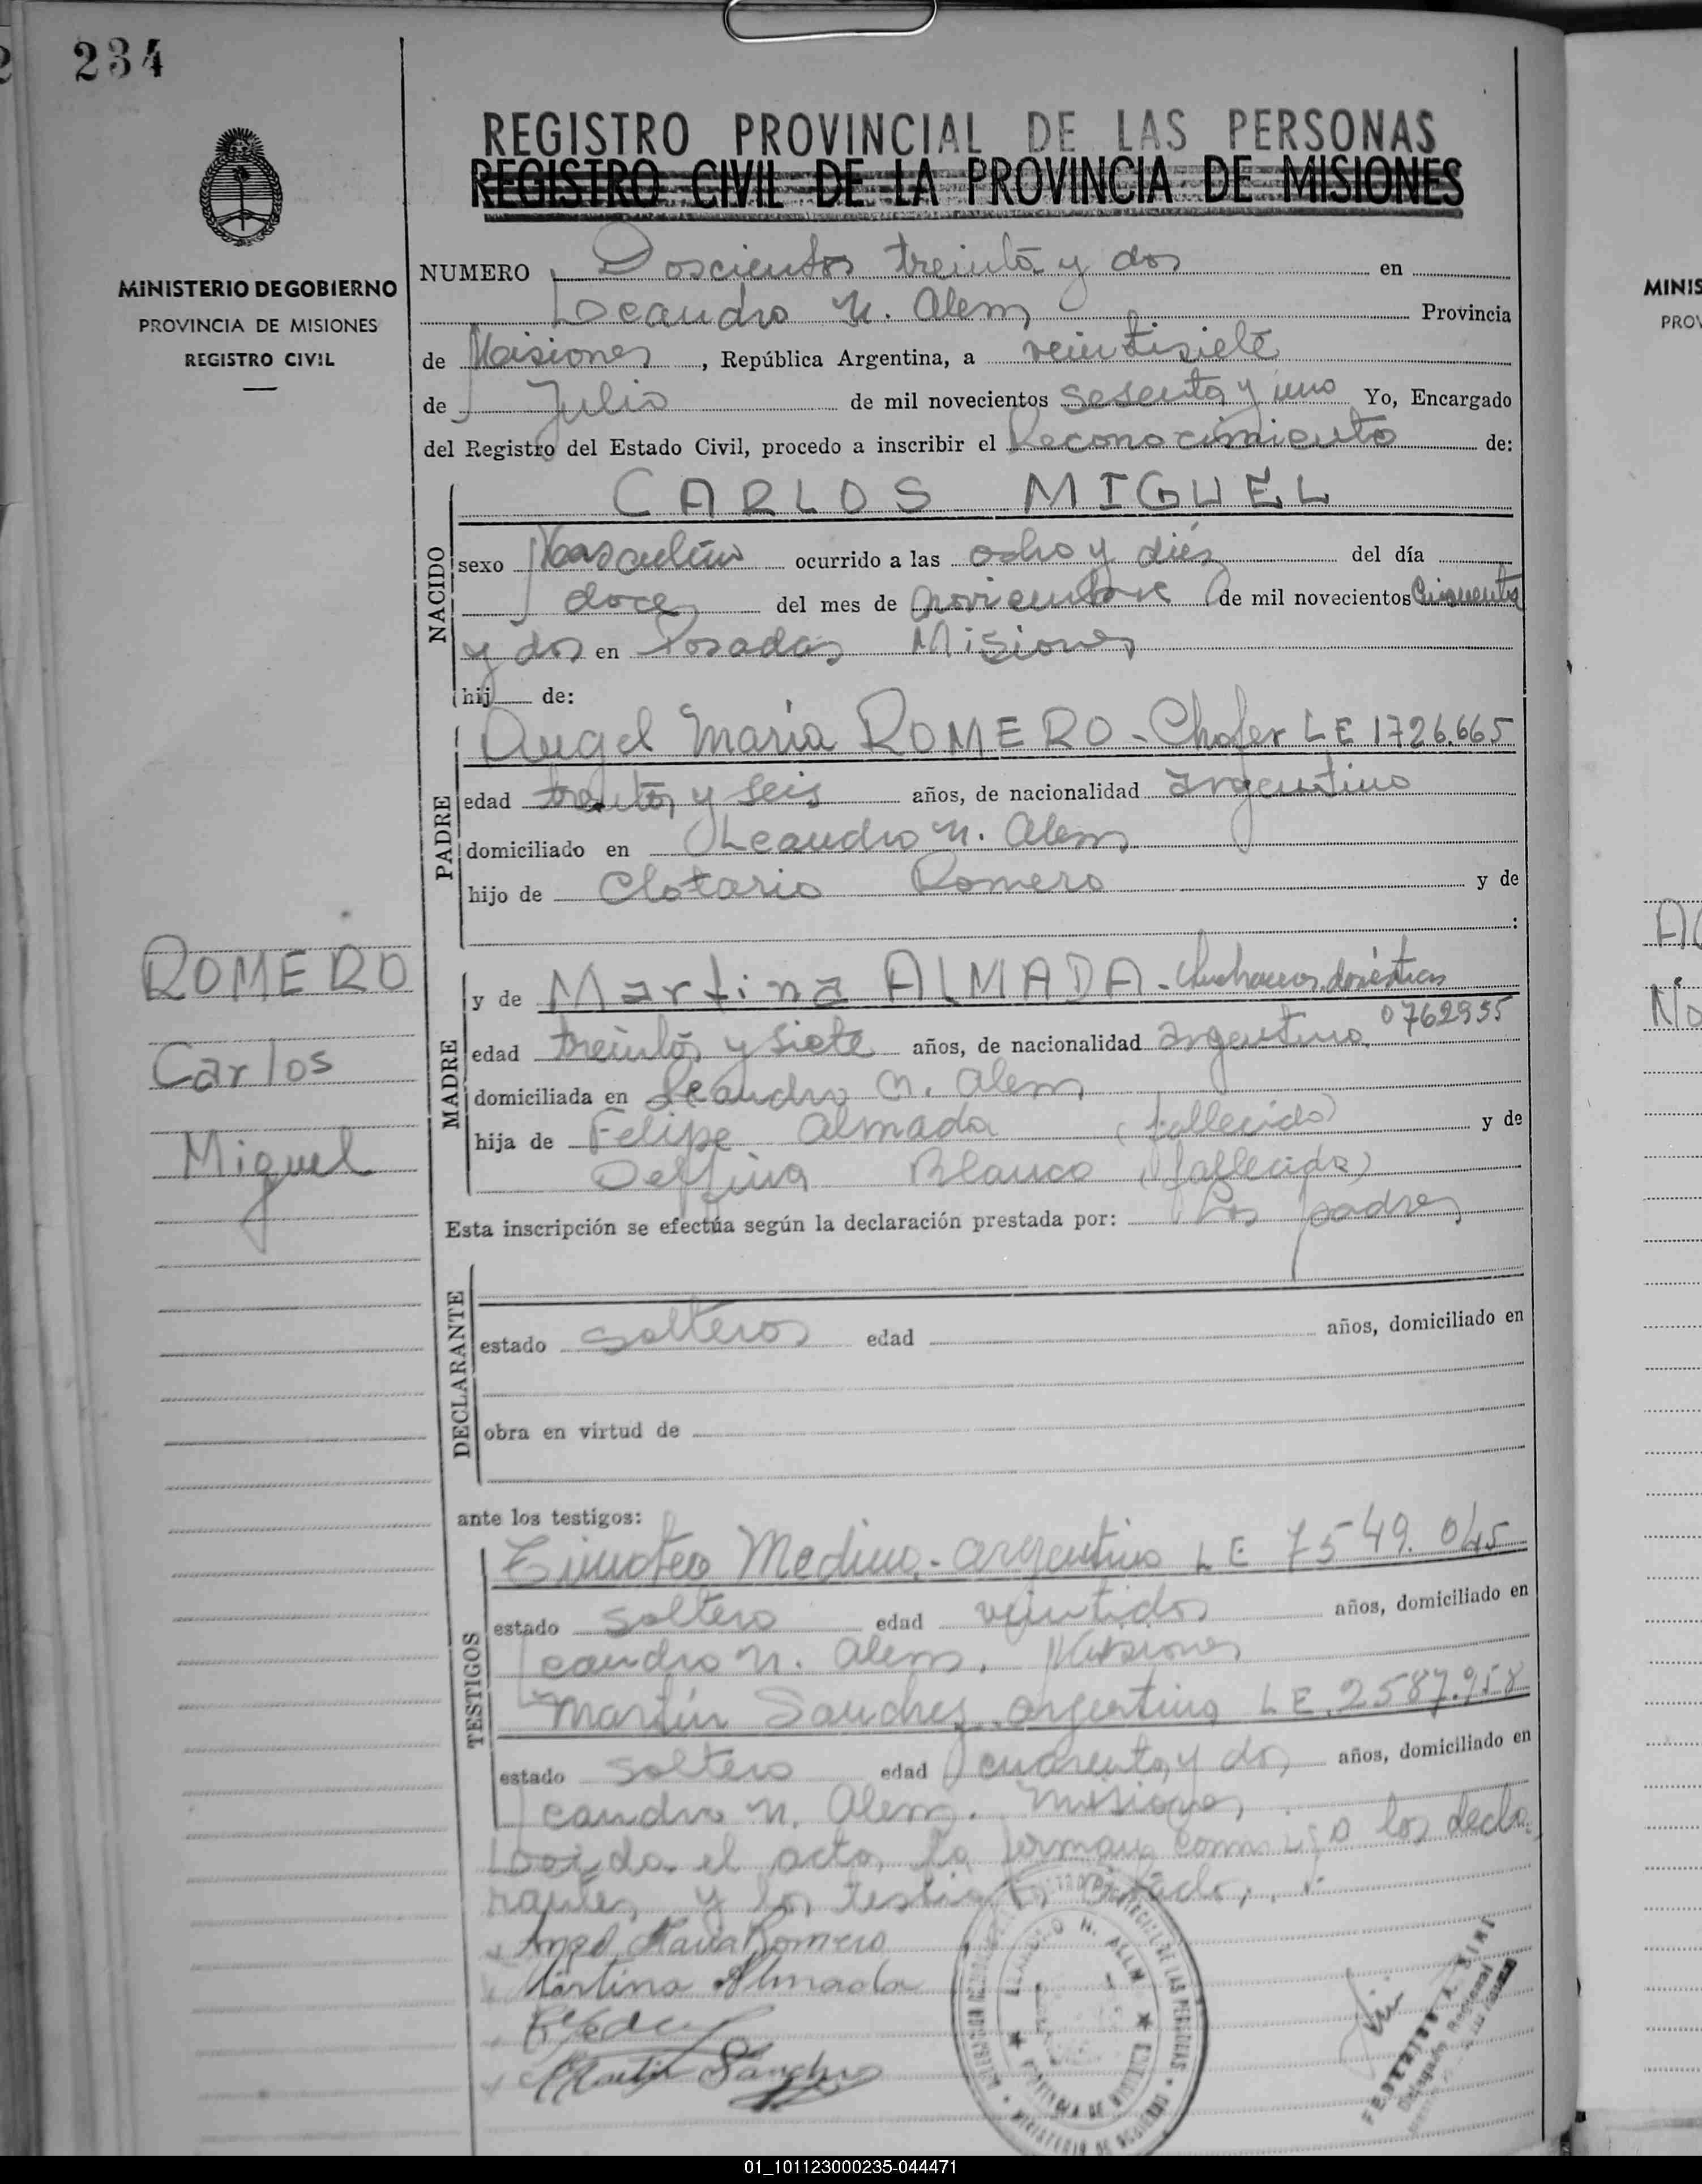 234
REGISTRO PROVINCIAL DE LAS PERSONAS
REGISTRO CIVIL DE LA PROVINCIA DE MISIONES
MINISTERIO DE GOBIERNO
PROVINCIA DE MISIONES
REGISTRO CIVIL
NUMERO Doscientos treinta y dos en
Leandro N. Alem Provincia
de Misiones, República Argentina, a veintisiete
de Julio de mil novecientos sesenta y uno Yo, Encargado
del Registro del Estado Civil, procedo a inscribir el Reconocimiento de:
NACIDO
CARLOS MIGUEL
sexo Masculino ocurrido a las ocho y diés del día
doce del mes de noviembre de mil novecientos Cincuenta
y dos en Posadas Misiones
hij de:
PADRE
Angel Maria ROMERO - Chofer LE 1726.665
edad treinta y seis años, de nacionalidad argentino
domiciliado en Leandro N. Alem
hijo de Clotario Romero y de
:
ROMERO
Carlos
Miguel
MADRE
y de Martina ALMADA - domésticos
0762935
edad treinta y siete años, de nacionalidad argentina
domiciliada en Leandro N. Alem
hija de Felipe Almada (fallecido) y de
Delfina Blanco (fallecida)
Esta inscripción se efectúa según la declaración prestada por: Los padres
DECLARANTE
estado solteros edad años, domiciliado en
obra en virtud de
ante los testigos:
TESTIGOS
Timoteo Medina - argentino LE 7549.045
estado soltero edad veintidos años, domiciliado en
Leandro N. Alem. Misiones
Martín Sanches argentino LE. 2587.958
estado soltero edad cuarenta y dos años, domiciliado en
Leandro N. Alem. Misiones
Leida el acta la firman conmigo los decla
rantes y los testigos
Angel Maria Romero
Martina Almada
Martin Sanches
LEANDRO N. ALEM
PROVINCIA DE MISIONES
MINISTERIO DE GOBIERNO
Delegado Regional
MINIS
PROV
01_101123000235-044471